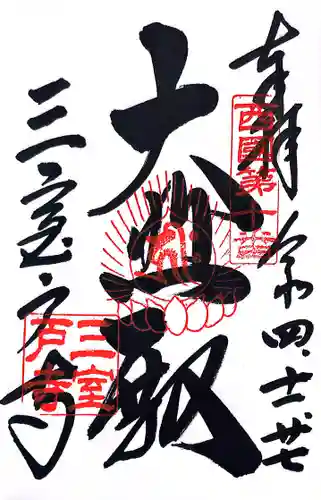 奉拝 令和四、十一、廿七
西國第十番
大悲殿
三室戸寺
三室戸寺